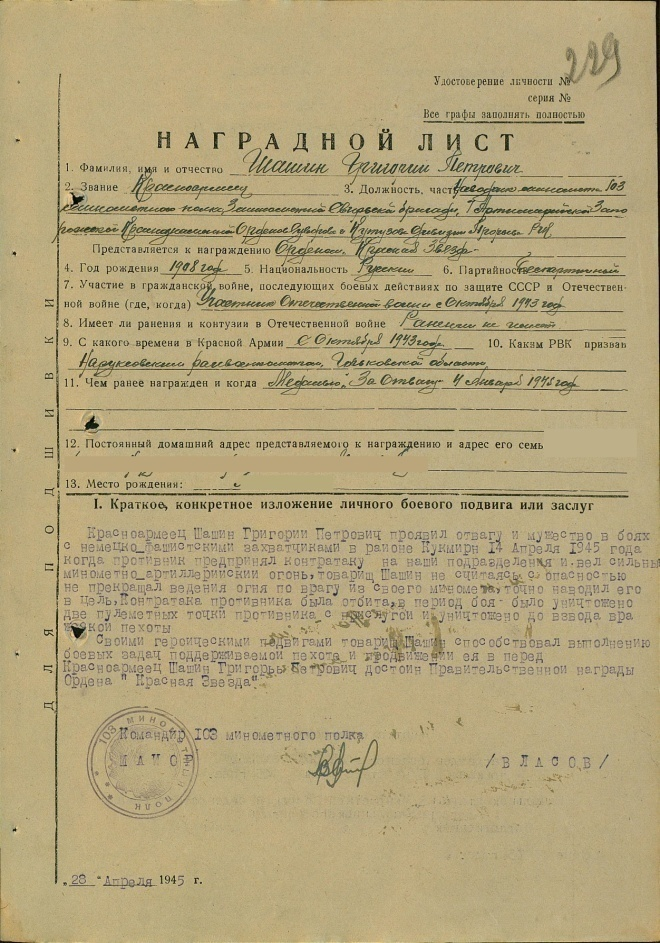 229
Удостоверение личности №
серия №
Все графы заполнять полностью
НАГРАДНОЙ ЛИСТ
1. Фамилия, имя и отчество Шашин Григорий Петрович
2. Звание Красноармеец 3. Должность, часть Наводчик миномета 103
минометного полка, минометной Свирской бригады, 7 Артиллерийской Запо
рожской Краснознаменной Ордена Суворова и Кутузова Дивизии Прорыва РГК
Представляется к награждению Орденом „Красная Звезда"
4. Год рождения 1908 год 5. Национальность Русский 6. Партийность Беспартийный
7. Участие в гражданской войне, последующих боевых действиях по защите СССР и Отечествен-
ной войне (где, когда) Участник Отечественной войны с Октября 1943 год
8. Имеет ли ранения и контузии в Отечественной войне Ранений не имеет
9. С какого времени в Красной Армии с Октября 1943 года 10. Каким РВК призван
Наруксовским райвоенкоматом, Горьковской области
11. Чем ранее награжден и когда Медалью „За Отвагу" 4 января 1945 год
12. Постоянный домашний адрес представляемого к награждению и адрес его семь
13. Место рождения:
I. Краткое, конкретное изложение личного боевого подвига или заслуг
Красноармеец Шашин Григории Петрович проявил отвагу и мужество в боях
с немецко_фашистскими захватчиками в районе Кукмирн 14 Апреля 1945 года
когда противник предпринял контратаку на наши подразделения и.вел сильны
минометно_артиллерийскии огонь,товарищ Шашин не считаясь с опасностью
не прекращал ведения огня по врагу из своего миномета,точно наводил его
в Цель,Контратака противника была отбита,в период боя было уничтожено
две пулеметных точки противника с прислугой и уничтожено до взвода вра
жеской пехоты
Своими героическими подвигами товарищ Шашин способствовал выполнению
боевых задач поддерживаемой пехота и продвижении ея в перед
Красноармеец Шашин Григорьь Петрович достоин Правительственной награды
Ордена " Красная Звезда"
Командир 103 минометного полка
МАЙОР /ВЛАСОВ/
103 МИНОМЕТНЫЙ ПОЛК
„28" Апреля 1945 г.
ДЛЯ ПОДШИВКИ